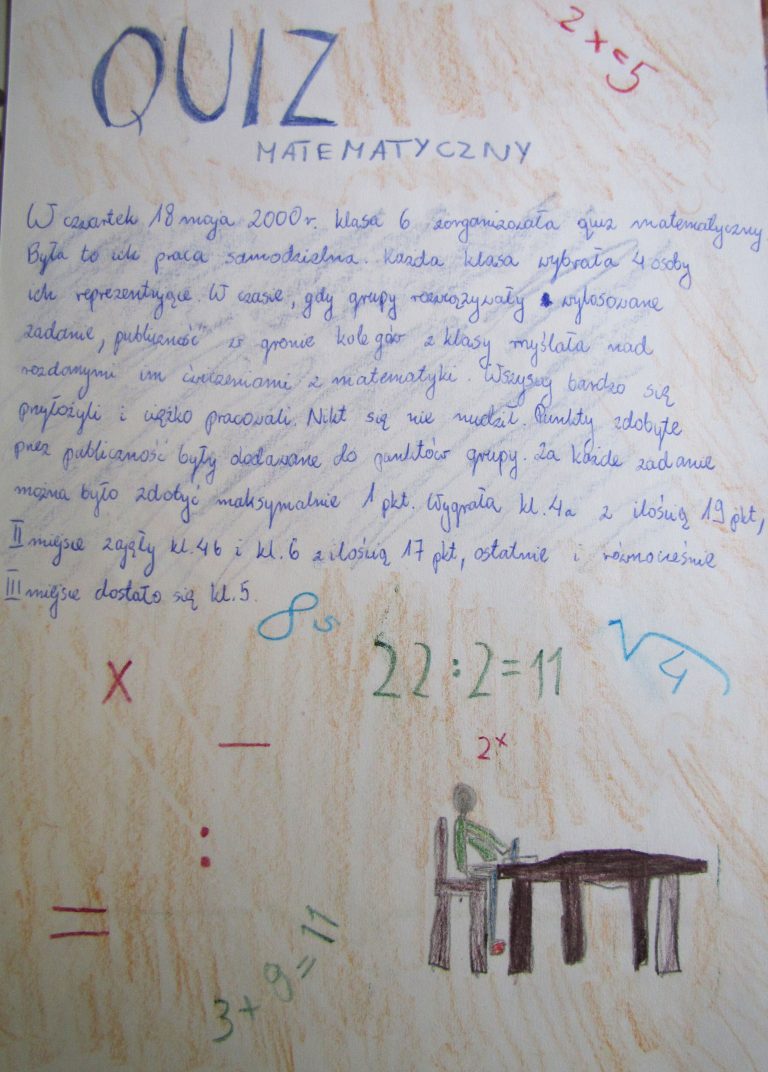 2x=5
QUIZ
MATEMATYCZNY
W czwartek 18 maja 2000r. klasa 6 zorganizowała quiz matematyczny
Była to ich praca samodzielna. Każda klasa wybrała 4 osoby
ich reprezentujące. W czasie, gdy grupy rozwiązywały wylosowane
zadanie, publiczność" w gronie kolegów z klasy myślała nad
rozdanymi im ćwiczeniami z matematyki. Wszyscy bardzo się
przyłożyli i ciężko pracowali. Nikt się nie nudził. Punkty zdobyte
przez publiczność były dodawane do punktów grupy. Za każde zadanie
można było zdobyć maksymalnie 1 pkt. Wygrała kl.4a z ilością 19 pkt,
II miejsce zajęły kl.4b i kl.6 z ilością 17 pkt, ostatnie i równocześnie
III miejsce dostało się kl.5.
22:2=11
√4
x
—
2x
:
=
3+9=11